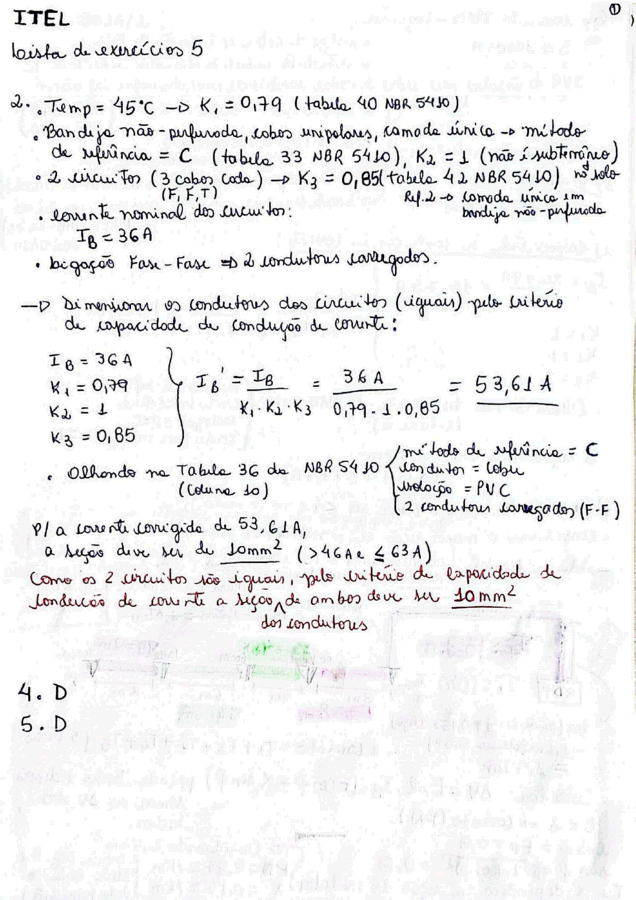 ITEL
①
Lista de exercícios 5
2. • Temp = 45°C → K₁ = 0,79 (tabela 40 NBR 5410)
• Bandeja não-perfurada, cabos unipolares, camada única → método
de referência = C (tabela 33 NBR 5410), K₂ = 1 (não é subterrâneo)
• 2 circuitos (3 cabos cada) → K₃ = 0,85 (tabela 42 NBR 5410) no solo
(F, F, T)
Ref. 2 → camada única em
bandeja não-perfurada
• corrente nominal dos circuitos:
I_B = 36A
• Ligação Fase-Fase ⇒ 2 condutores carregados.
→ Dimensionar os condutores dos circuitos (iguais) pelo critério
de capacidade de condução de corrente:
I_B = 36A
K₁ = 0,79
K₂ = 1
K₃ = 0,85
I_B' = I_B / K₁·K₂·K₃ = 36A / 0,79·1·0,85 = 53,61A
• Olhando na Tabela 36 da NBR 5410
(coluna 10)
método de referência = C
condutor = cobre
isolação = PVC
2 condutores carregados (F-F)
P/ a corrente corrigida de 53,61A,
a seção deve ser de 10mm² (>46A e ≤ 63A)
Como os 2 circuitos são iguais, pelo critério de capacidade de
condução de corrente a seção ^ de ambos deve ser 10mm²
dos condutores
4. D
5. D